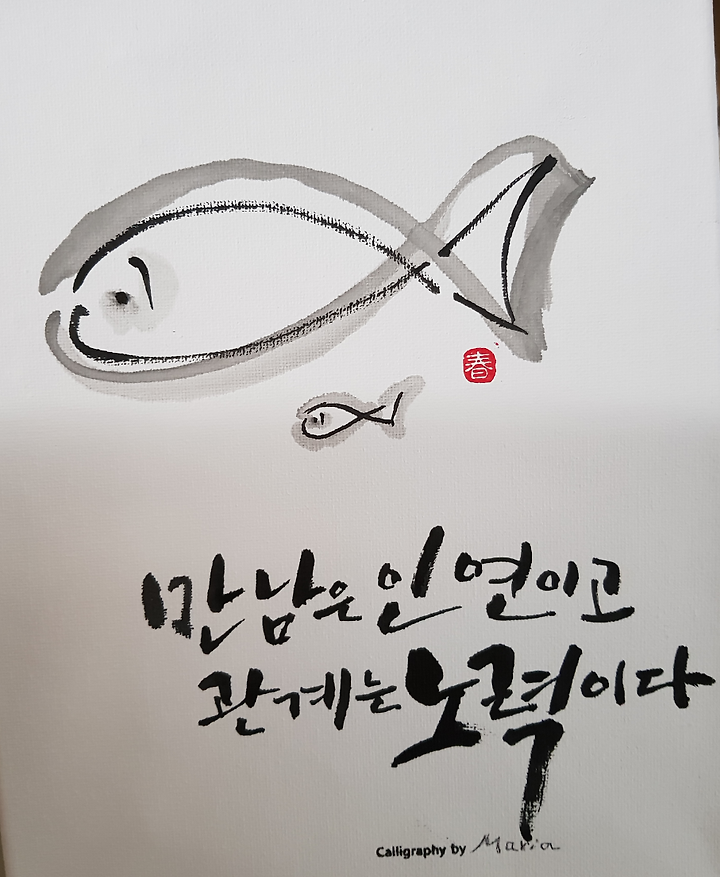 春
만남은 인연이고
관계는 노력이다
Calligraphy by Maria